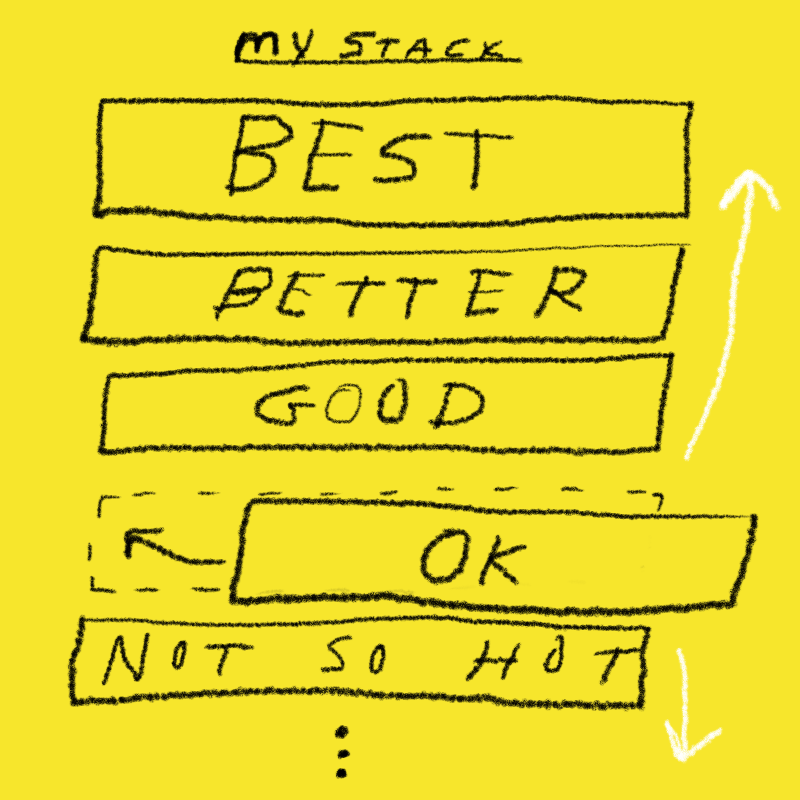 MY STACK
BEST
BETTER
GOOD
OK
NOT SO HOT